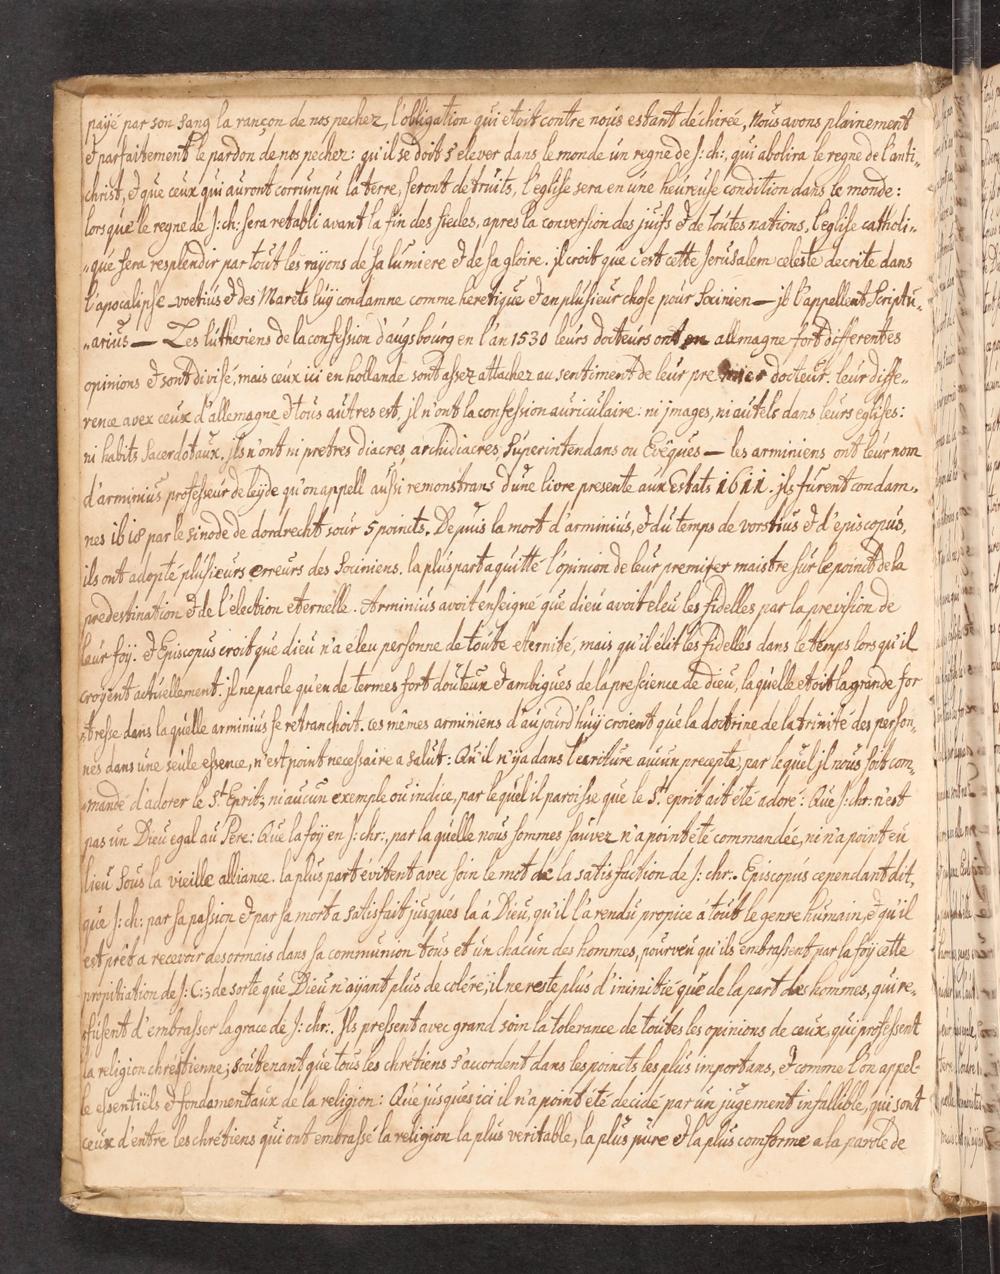 payé par son sang la rançon de nos pechez, l'obligation qui etoit contre nous estant dechirée, Nous avons plainement
et parfaitement le pardon de nos pechez: qu'il se doit s'elever dans le monde un regne de J: ch:, qui abolira le regne de l'anti-
christ, et que ceux qui auront corrumpu la terre, seront detruits, l'eglise sera en une heureuse condition dans le monde:
lorsque le regne de J: ch: sera retabli avant la fin des siecles, apres la conversion des juifs et de toutes nations, l'eglise catholi-
-que sera resplendir par tout les rayons de sa lumiere et de sa gloire. jl croit que c'est cette Jerusalem celeste decrite dans
l'apocalipse - voetius et des Marets luy condamne comme heretique et en plusieur chose pour Socinien — jl l'appellent Scriptu-
-arius — Les lutheriens de la confession d'augsbourg en l'an 1530 leurs docteurs ont en allemagne fort differentes
opinions et sont divisé, mais ceux ici en hollande sont assez attachez au sentiment de leur premier docteur. leur diffe-
rence avex ceux d'allemagne et tous autres est, jl n'ont la confession auriculaire: ni jmages, ni autels dans leurs eglises:
ni habits Sacerdotaux. jls n'ont ni pretres diacres archidiacres, Superintendans ou Evêques — les arminiens ont leur nom
d'arminius professeur de leijde qu'on appell aussi remonstrans d'une livre presente aux Estats 1611. jls furent condam-
nes 1618 par le sinode de dordrecht sour 5 poincts. Depuis la mort d'arminius, et du temps de vorstius et d'episcopus,
ils ont adopté plusieurs erreurs des Sociniens. la pluspart a quitté l'opinion de leur premirer maistre sur le point de la
predestination et de l'election eternelle. Arminius avoit enseigné que dieu avoit eleu les fidelles par la prevision de
leur foÿ. et Episcopus croit que dieu n'a eleu personne de toute eternité, mais qu'il élit les fidelles dans le temps lors qu'il
croyent actuellement. jl ne parle qu'en de termes fort douteux et ambigues de la prescience de Dieu, laquelle etoit la grande for
tresse dans laquelle arminius se retranchoit. ces mêmes arminiens d'aujourd'huy croient que la doctrine de la trinité des person-
nes dans une seule essence, n'est point necessaire a salut: Qu'il n'ya dans l'ecriture aucun precepte, par lequil jl nous soit com-
-mandé d'adorer le St. Eprit, ni aucun exemple ou indice, par lequel il paroisse que le St. eprit ait été adoré: Que J: chr: n'est
pas un Dieu egal au Pere: Que la foÿ en J: chr:, par la quelle nous sommes sauvez n'a point été commandée, ni n'a point eu
lieu sous la vieille alliance. la plus part évitent avec soin le mot de la satisfaction de J: chr:. Episcopus cependant dit,
que J: ch: par sa passion et par sa mort a satisfait jusques la á Dieu, qu'il l'a rendu propice á tout le genre humain, et qu'il
est prêt a recevoir desormais dans sa communion tous et un chacun des hommes, pourveu qu'ils embrasent par la foÿ cette
propitiation de J: C:; de sorte que Dieu n'ayant plus de colére, il ne reste plus d'inimitié que de la part des hommes, qui re-
-fusent d'embrasser la grace de J: chr:. Jls pressent avec grand soin la tolerance de toutes les opinions de ceux, qui professent
la religion chrestienne; soutenant que tous les chrétiens s'accordent dans les poincts les plus importans, et comme l'on appel-
le essentiels et fondamentaux de la religion: Que jusques ici il n'a point été decidé par un jugement infallible, qui sont
ceux d'entre les chrétiens qui ont embrassé la religion la plus veritable, la plus pure et la plus conforme a la parole de